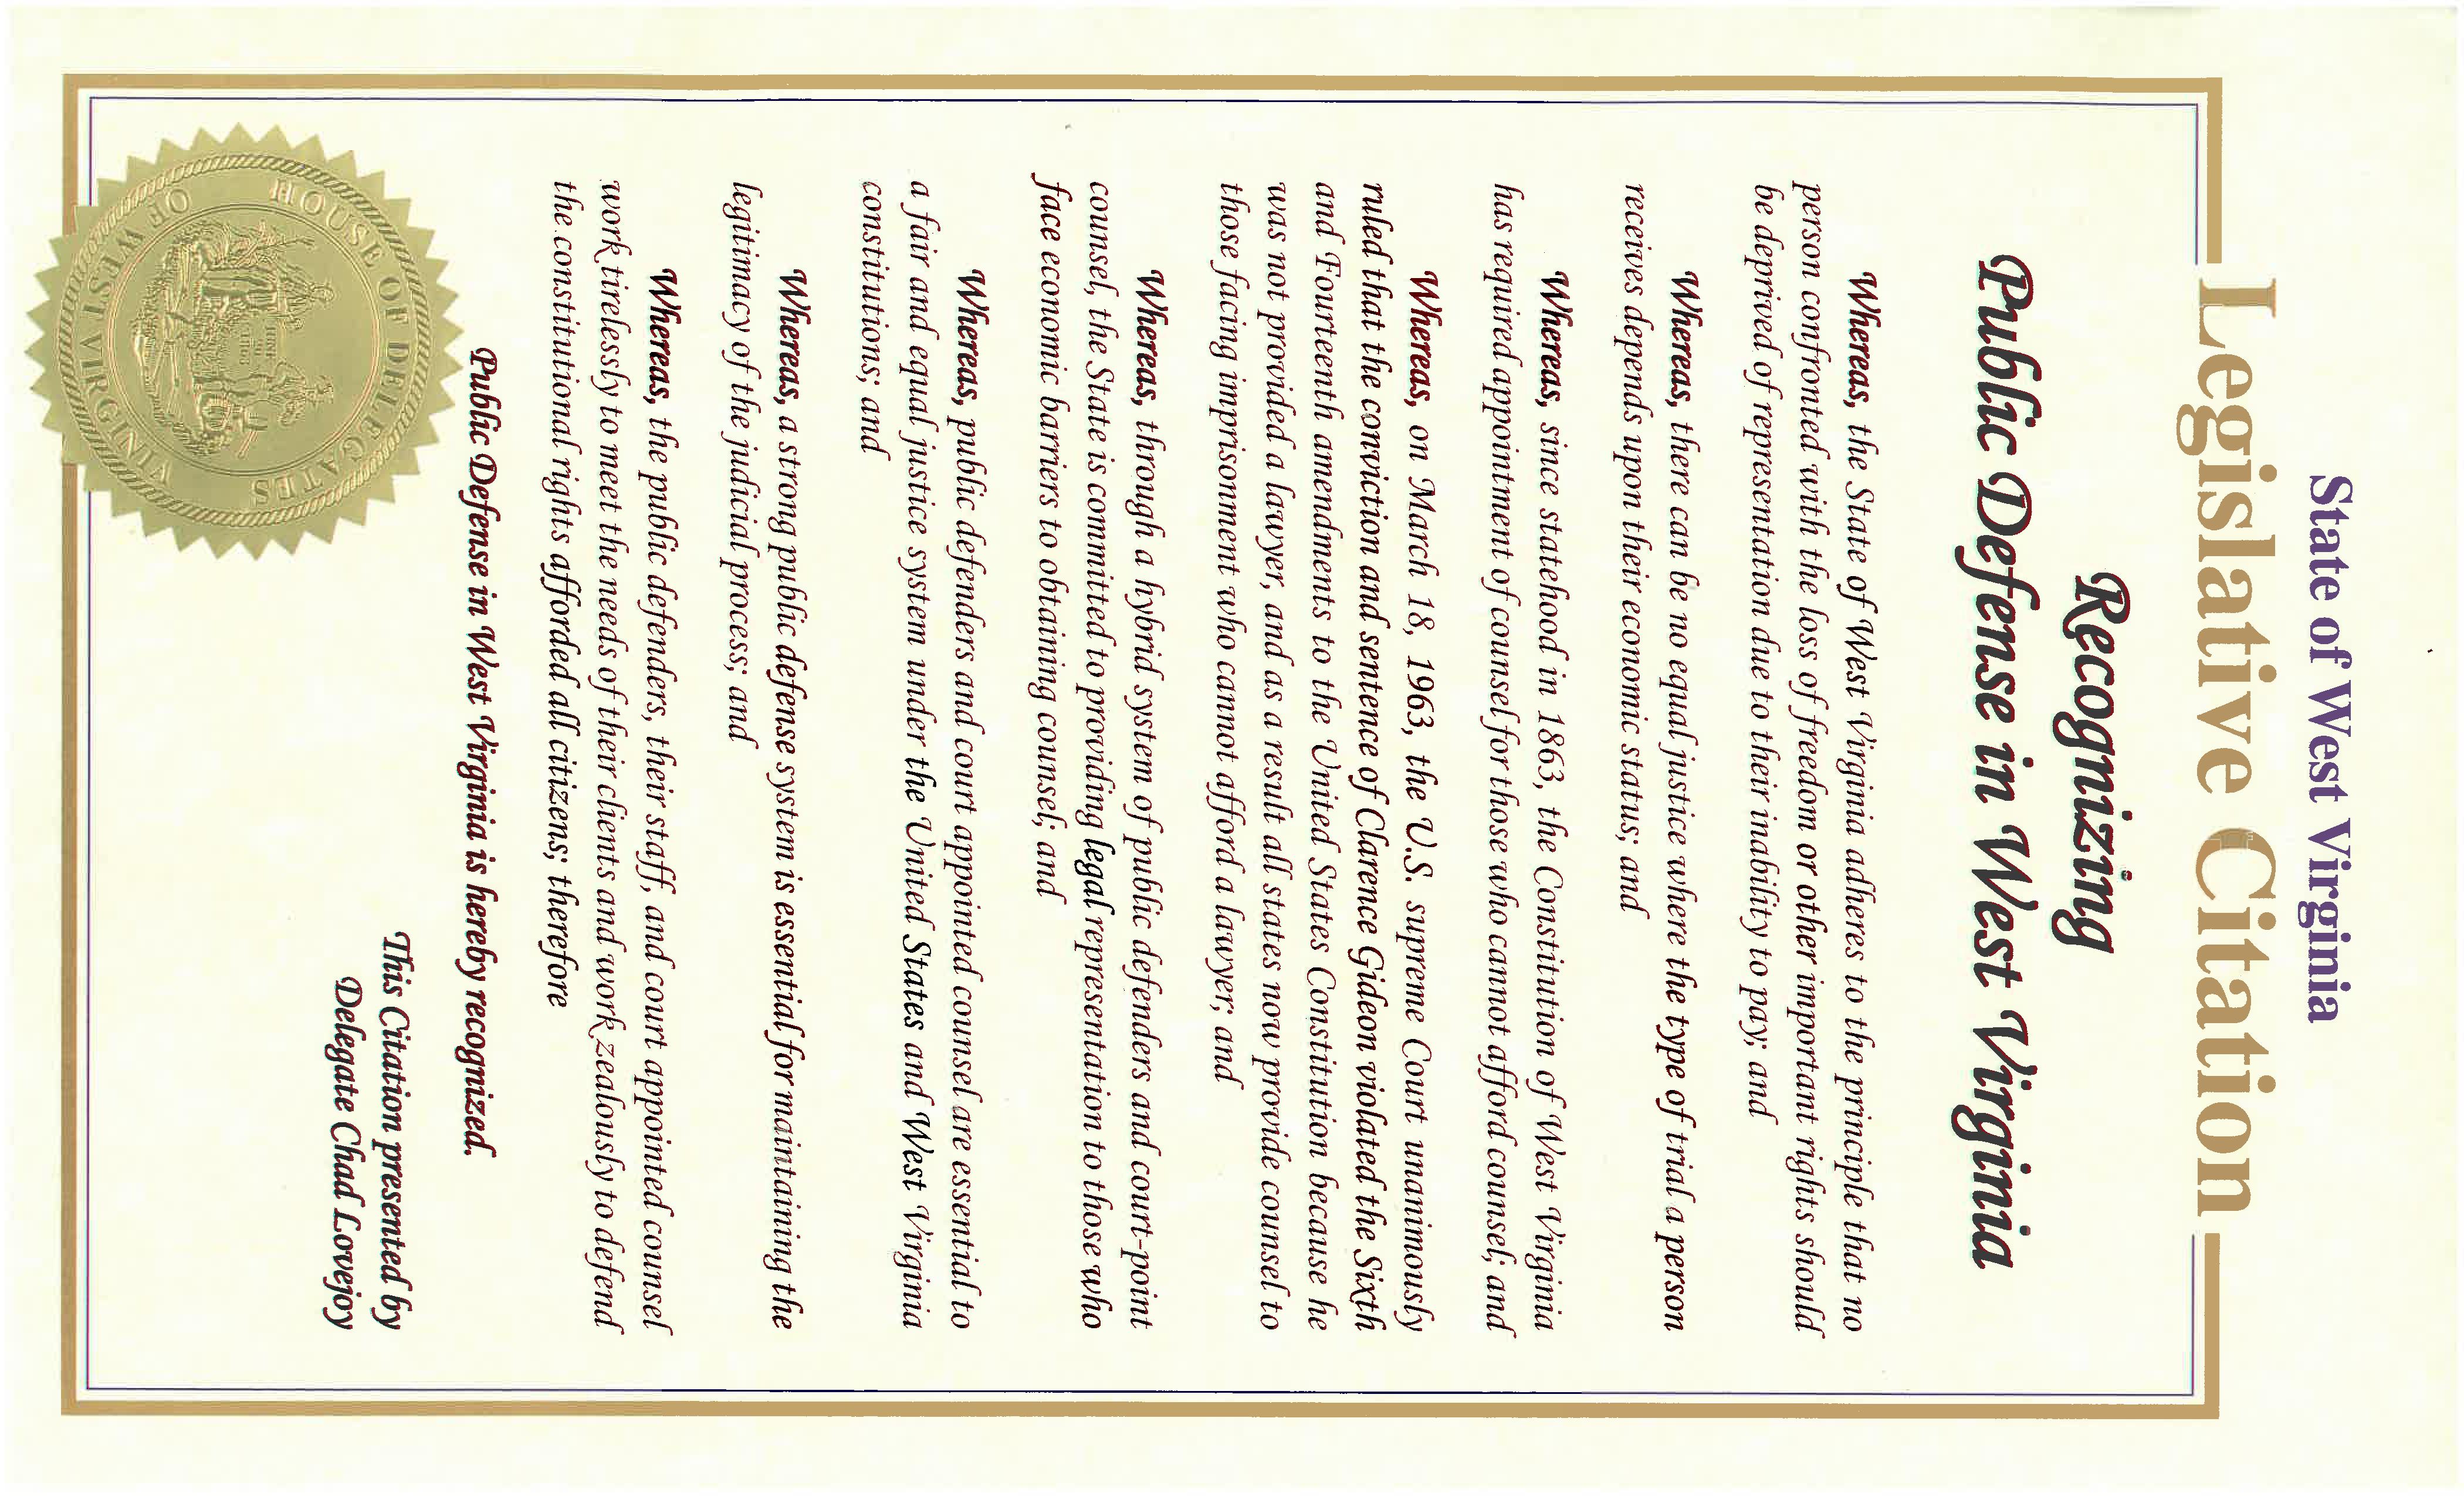 State of West Virginia
Legislative Citation
Recognizing
Public Defense in West Virginia
Whereas, the State of West Virginia adheres to the principle that no
person confronted with the loss of freedom or other important rights should
be deprived of representation due to their inability to pay; and
Whereas, there can be no equal justice where the type of trial a person
receives depends upon their economic status; and
Whereas, since statehood in 1863, the Constitution of West Virginia
has required appointment of counsel for those who cannot afford counsel; and
Whereas, on March 18, 1963, the U.S. supreme Court unanimously
ruled that the conviction and sentence of Clarence Gideon violated the Sixth
and Fourteenth amendments to the United States Constitution because he
was not provided a lawyer, and as a result all states now provide counsel to
those facing imprisonment who cannot afford a lawyer; and
Whereas, through a hybrid system of public defenders and court-point
counsel, the State is committed to providing legal representation to those who
face economic barriers to obtaining counsel; and
Whereas, public defenders and court appointed counsel are essential to
a fair and equal justice system under the United States and West Virginia
constitutions; and
Whereas, a strong public defense system is essential for maintaining the
legitimacy of the judicial process; and
Whereas, the public defenders, their staff, and court appointed counsel
work tirelessly to meet the needs of their clients and work zealously to defend
the constitutional rights afforded all citizens; therefore
Public Defense in West Virginia is hereby recognized.
This Citation presented by
Delegate Chad Lovejoy
HOUSE OF DELEGATES
JUNE
20
1863
OF WEST VIRGINIA